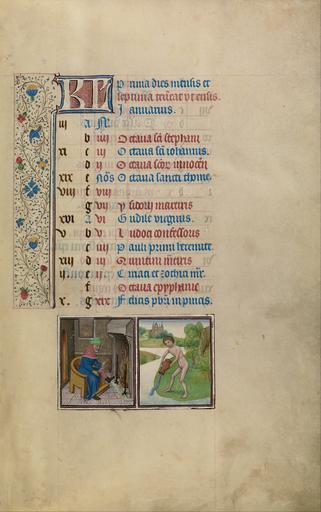 KL Prima dies mensis et
septima truncat ut ensis.
Januarius.
iii a N.
b iiii Octava sci stephani
xi c iii Octava sci iohannis.
d ii Octava scor innocen
xix e nōs Octava sancti thome.
viii f viii
g vii ysidori martiris
xvi a vi Gudile virginis.
v b v Ludoci confessoris
c iiii Pauli primi heremite.
xiii d iii
ii e ii Ciriaci et
f Octava epyphanie
x. g xix Felicis pbri in pincis.